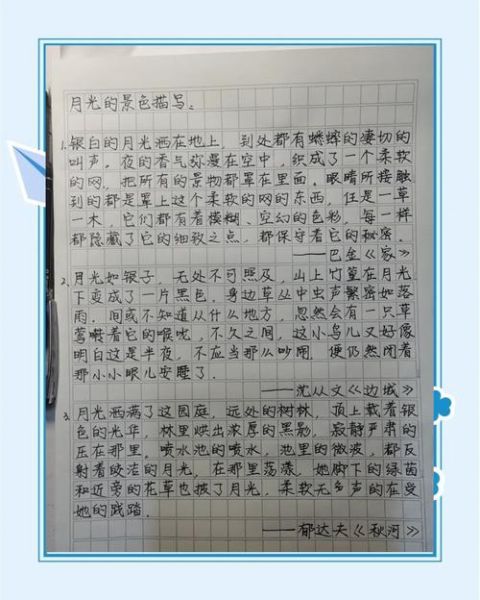 月光的景色描写。
1.银白的月光洒在地上，到处都有蟋蟀的凄切的
叫声。夜的香气弥漫在空中，织成了一个柔软
的网，把所有的景物都罩在里面。眼睛所接触
到的都是罩上这个柔软的网的东西，任是一草
一木，它们都有着模糊、空幻的色彩，每一样
都隐藏了它的细致之点，都保守着它的秘密。
——巴金《家》
2.月光如银子，无处不可照及，山上竹篁在月光
下变成了一片黑色。身边草丛中虫声繁密如落
雨。间或不知道从什么地方，忽然会有一只草
莺啭着它的喉咙，不久之间，这小鸟儿又好像
明白这是半夜，不应当那么吵闹，便仍然闭着
那小小眼儿安睡了。
——沈从文《边城》
3.月光洒满了这园庭，远处的树林，顶上载着银
色的光华，林里烘出浓厚的黑影，寂静严肃的
压在那里。喷水池的喷水，池里的微波，都反
射着皎洁的月光，在那里荡漾，她脚下的绿茵
和近旁的花草也披了月光，柔软无声的在受
她的践踏。
——郁达夫《秋河》